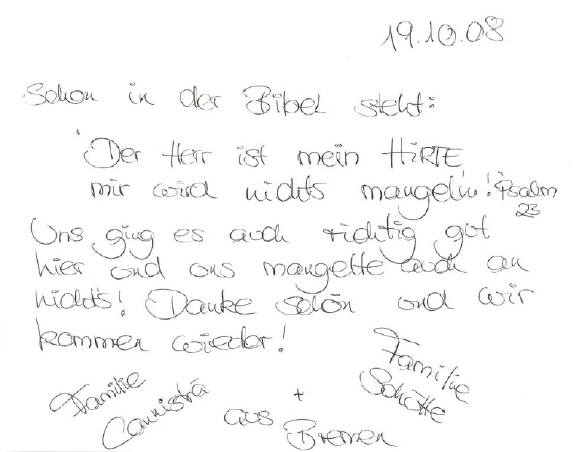 19.10.08
Schon in der Bibel steht:
"Der Herr ist mein HiRTE
mir wird nichts mangeln!" Psalm
23
Uns ging es auch richtig gut
hier und uns mangelte auch an
nichts! Danke schön und wir
kommen wieder!
Familie Cannistrá + Familie Schütte
aus Bremen